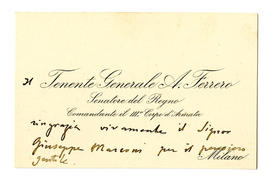 Il Tenente Generale A. Ferrero
Senatore del Regno
Comandante il III.º Corpo d'Armata
ringrazia vivamente il Signor
Giuseppe Marconi per il pensiero
gentile.
Milano